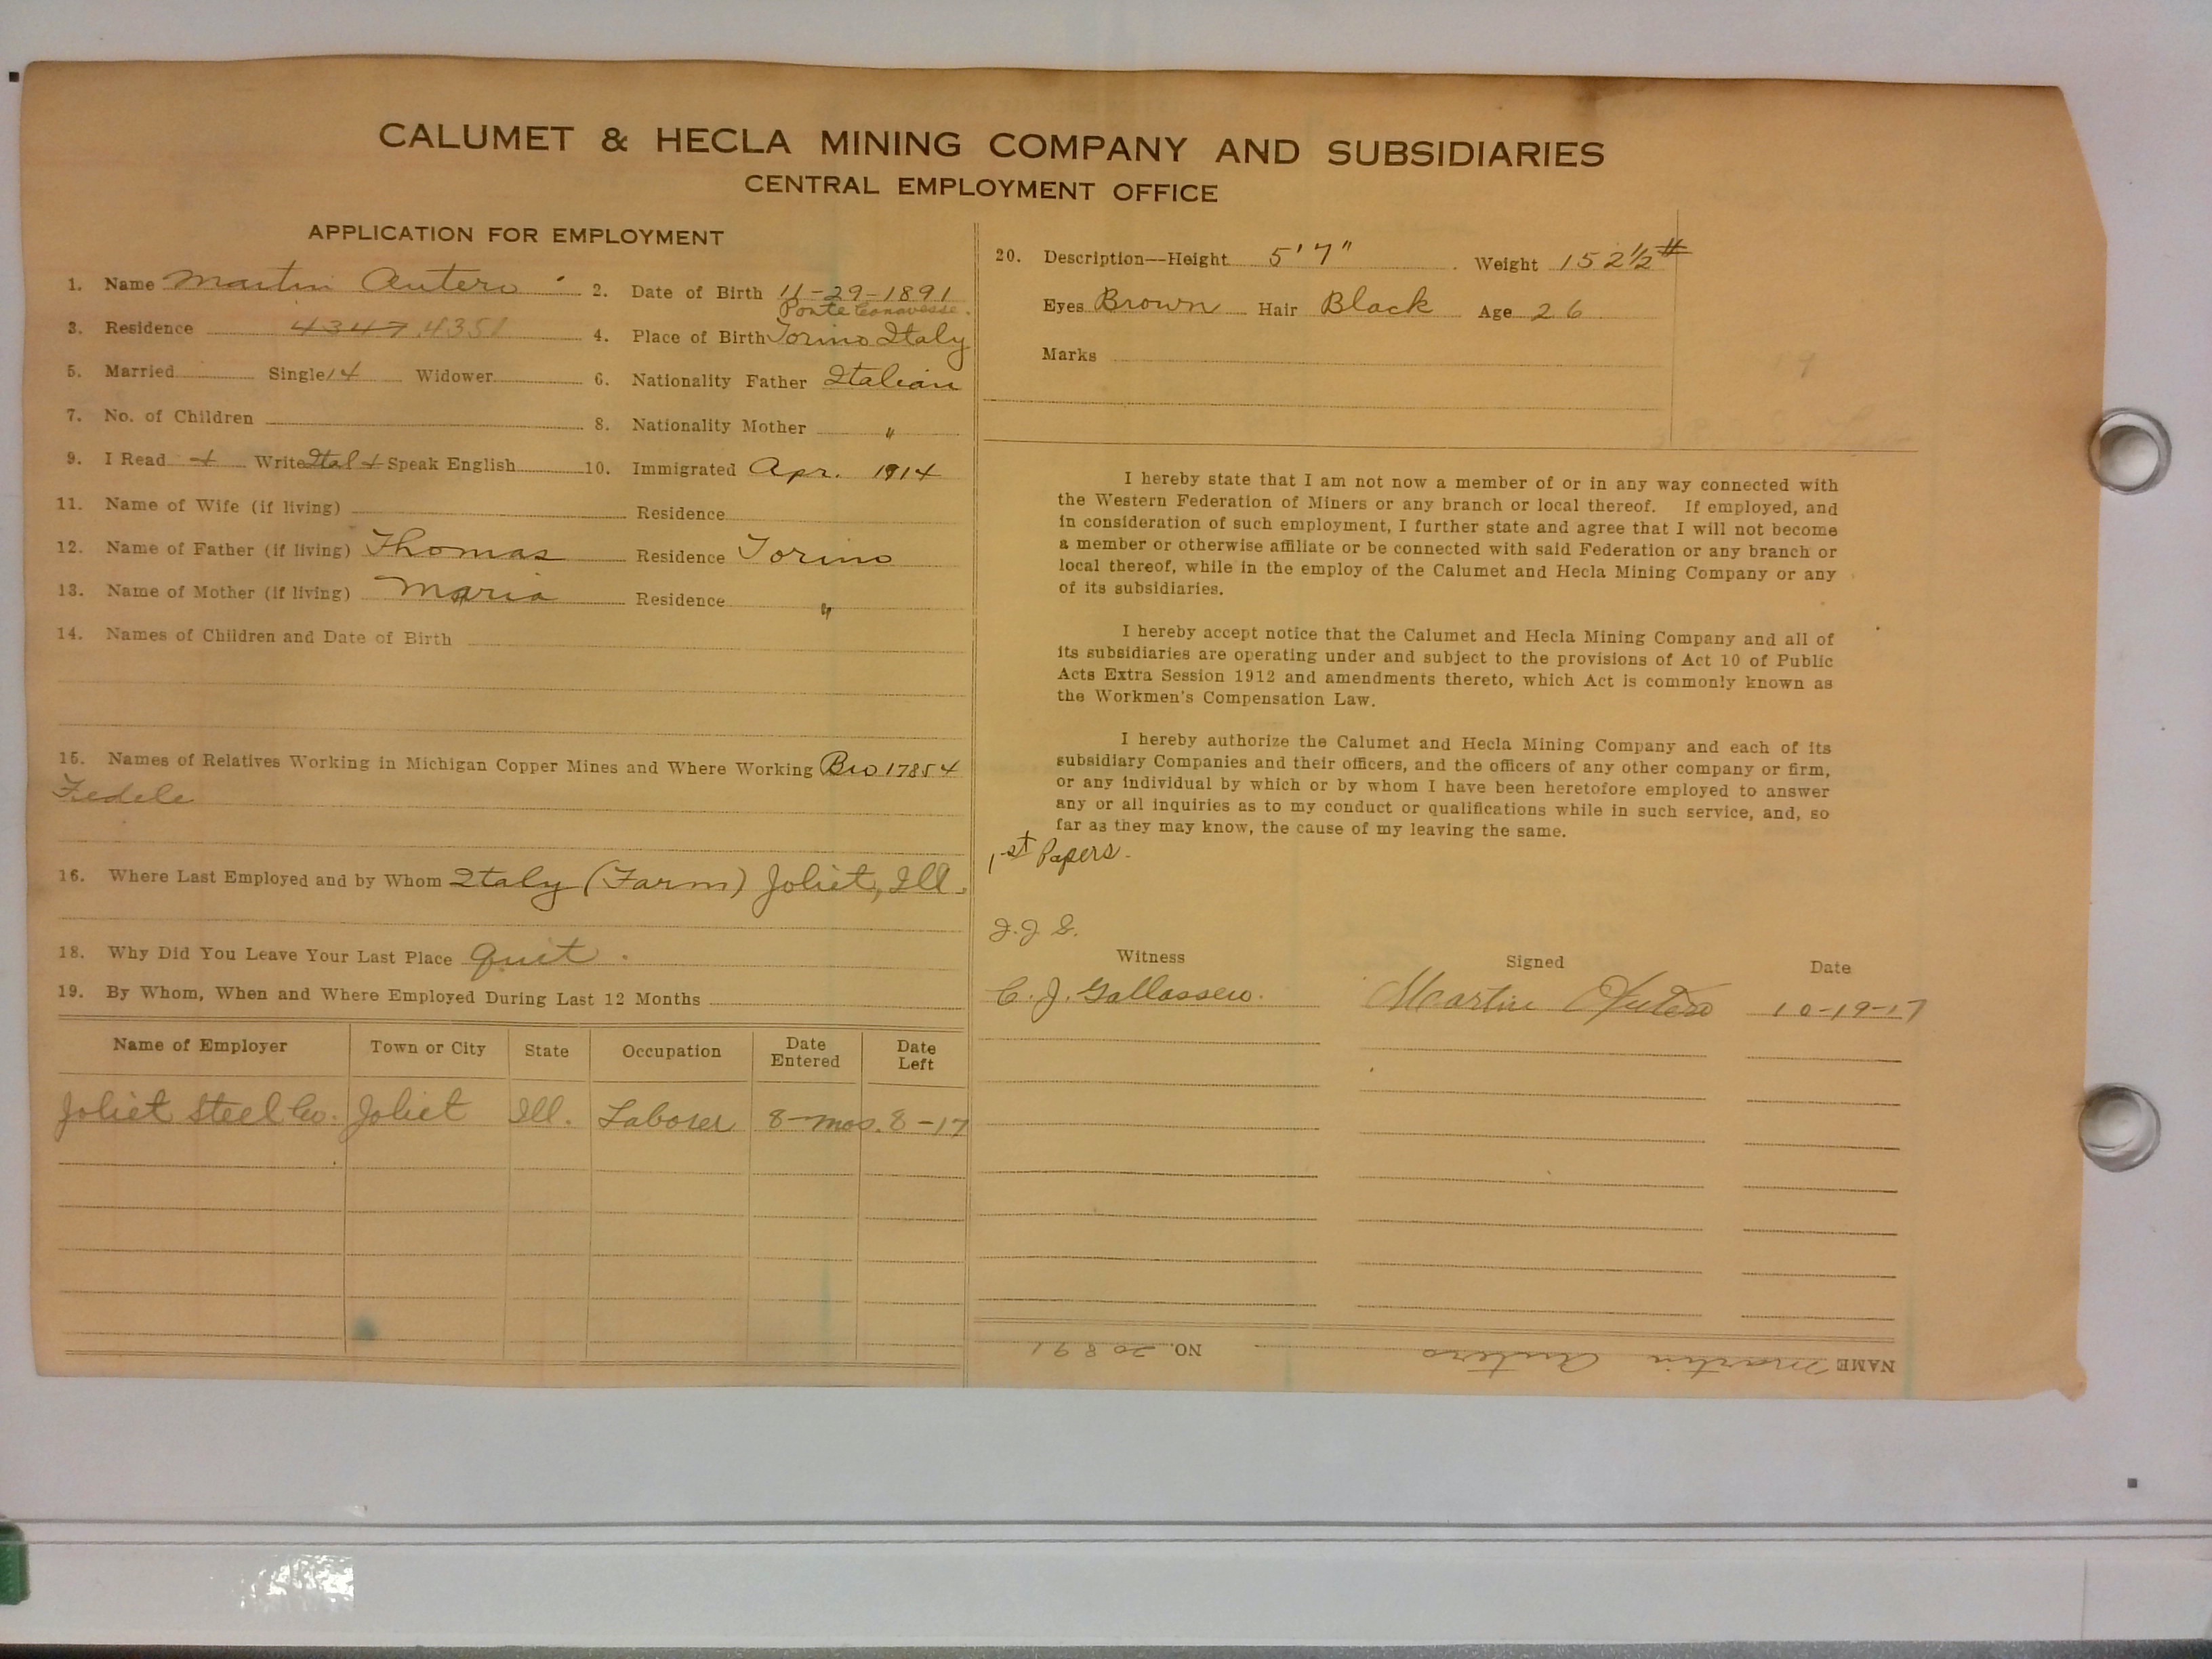 CALUMET & HECLA MINING COMPANY AND SUBSIDIARIES
CENTRAL EMPLOYMENT OFFICE
APPLICATION FOR EMPLOYMENT
1. Name Martin Antero 2. Date of Birth 11-29-1891
Ponte Canavesse.
3. Residence 4347 4351 4. Place of Birth Torino Italy
5. Married Single 14 Widower 6. Nationality Father Italian
7. No. of Children 8. Nationality Mother "
9. I Read + Write Ital + Speak English 10. Immigrated Apr. 1914
11. Name of Wife (if living) Residence
12. Name of Father (if living) Thomas Residence Torino
13. Name of Mother (if living) Maria Residence "
14. Names of Children and Date of Birth
15. Names of Relatives Working in Michigan Copper Mines and Where Working Bro 17854
Fedele
16. Where Last Employed and by Whom Italy (Farm) Joliet, Ill.
18. Why Did You Leave Your Last Place Quit.
19. By Whom, When and Where Employed During Last 12 Months
Name of Employer Town or City State Occupation Date Entered Date Left
Joliet Steel Co. Joliet Ill. Laborer 8-mos. 8-17
20. Description—Height 5'7" Weight 152½#
Eyes Brown Hair Black Age 26
Marks
I hereby state that I am not now a member of or in any way connected with
the Western Federation of Miners or any branch or local thereof. If employed, and
in consideration of such employment, I further state and agree that I will not become
a member or otherwise affiliate or be connected with said Federation or any branch or
local thereof, while in the employ of the Calumet and Hecla Mining Company or any
of its subsidiaries.
I hereby accept notice that the Calumet and Hecla Mining Company and all of
its subsidiaries are operating under and subject to the provisions of Act 10 of Public
Acts Extra Session 1912 and amendments thereto, which Act is commonly known as
the Workmen's Compensation Law.
I hereby authorize the Calumet and Hecla Mining Company and each of its
subsidiary Companies and their officers, and the officers of any other company or firm,
or any individual by which or by whom I have been heretofore employed to answer
any or all inquiries as to my conduct or qualifications while in such service, and, so
far as they may know, the cause of my leaving the same.
1st Papers.
J.J.S.
Witness Signed Date
C. J. Gallassero. Martin Antero 10-19-17
NAME Martin Antero NO. 20891